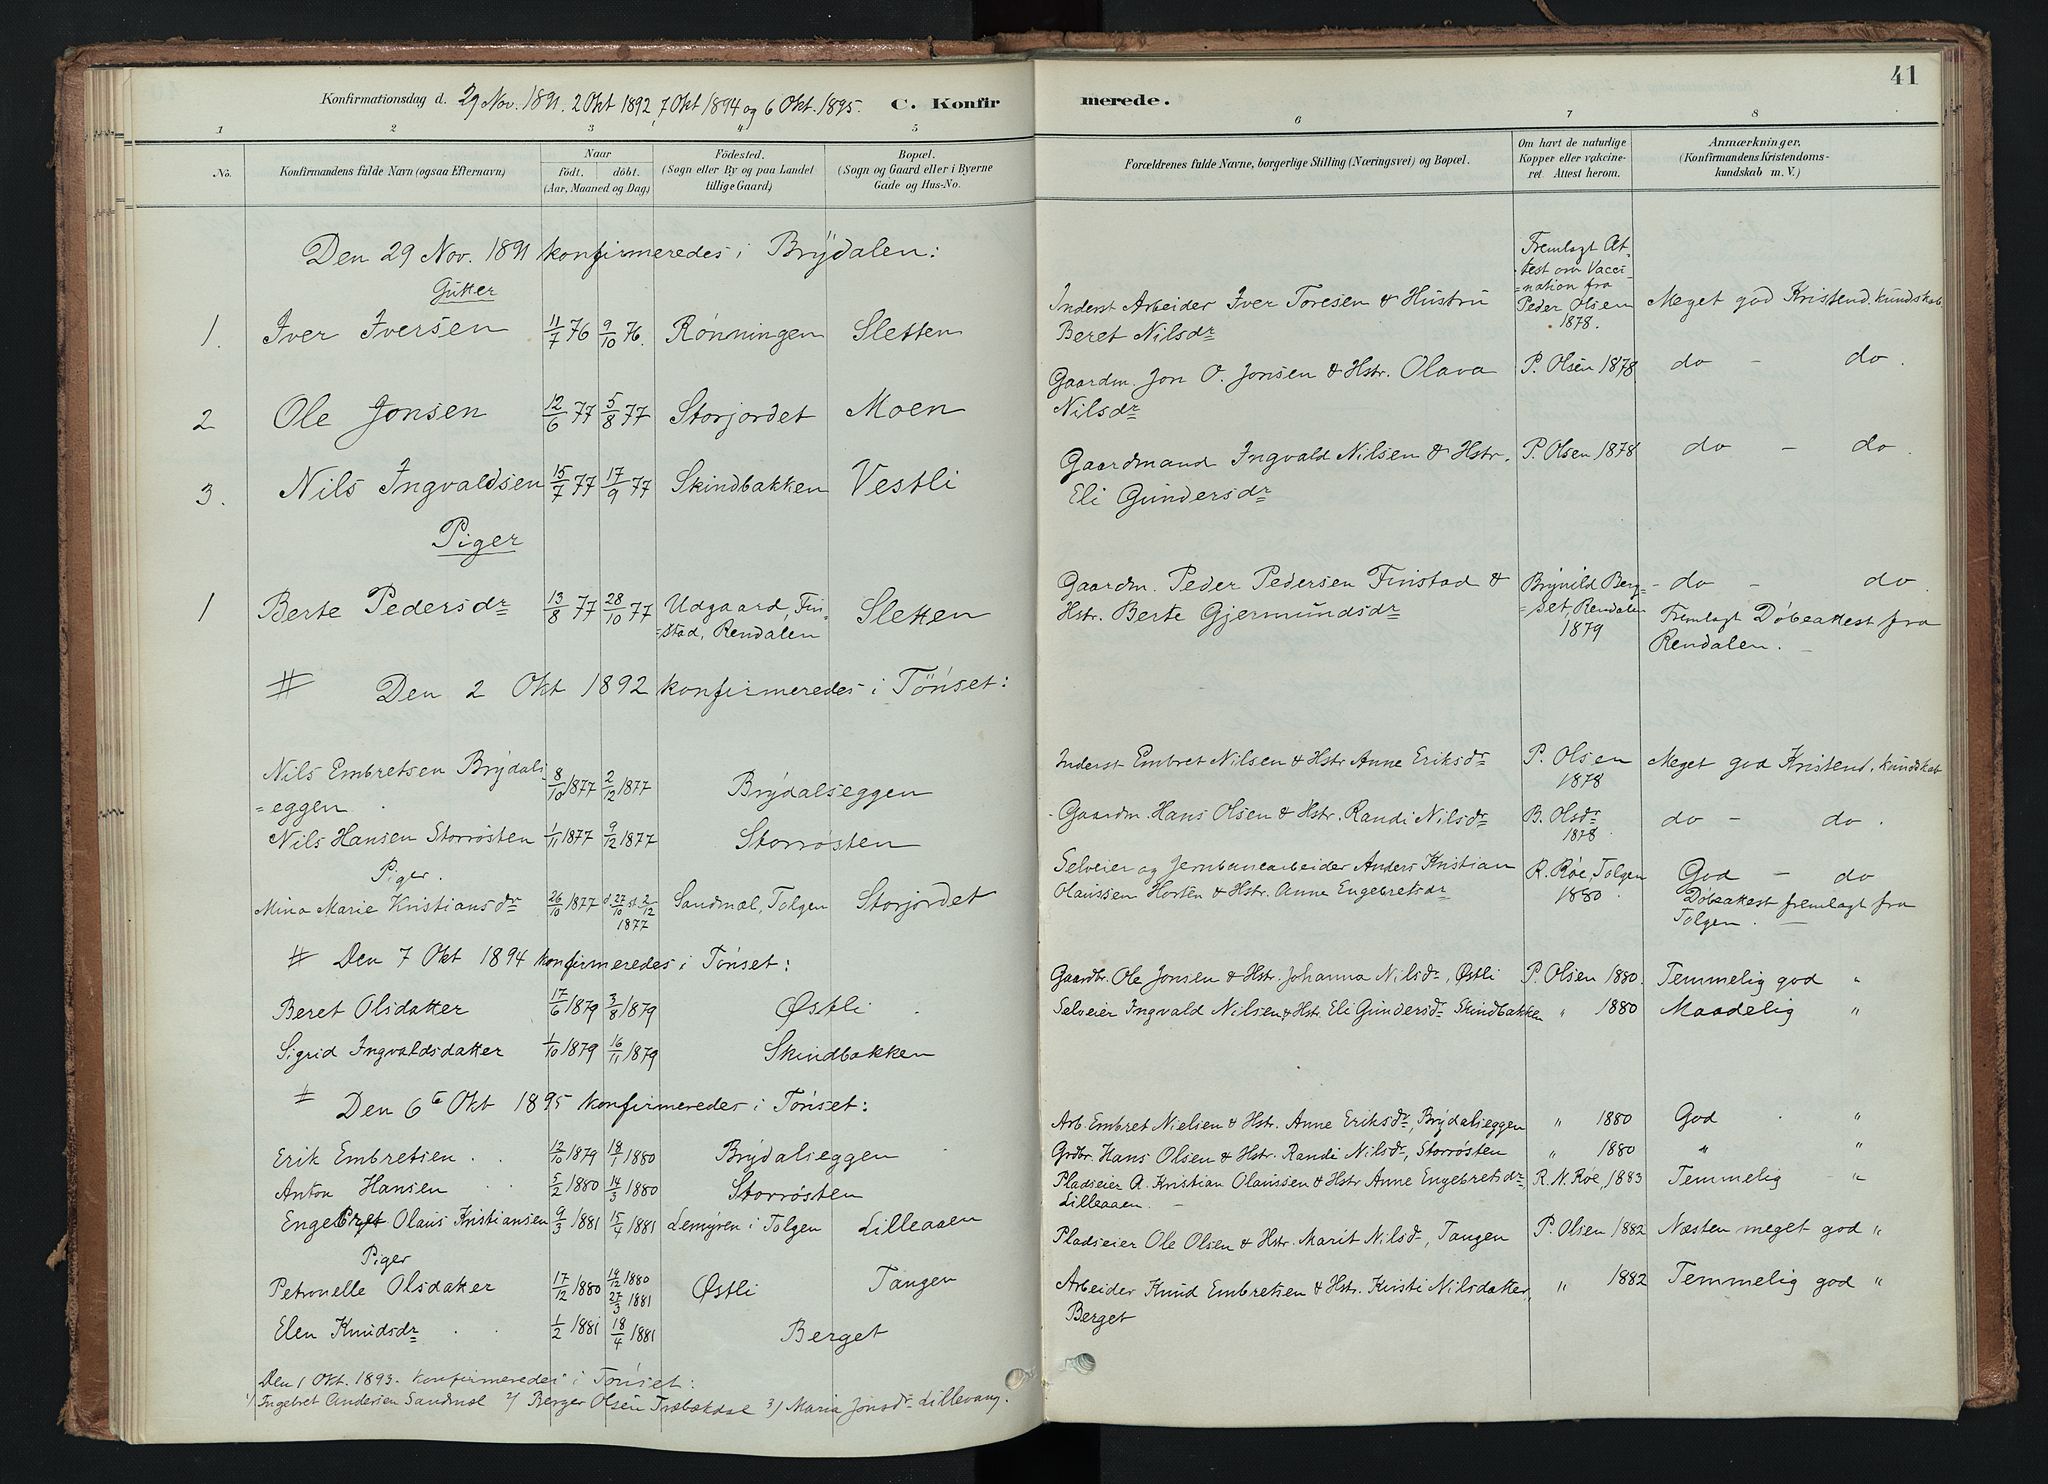 41
Konfirmationsdag d. 29 Nov. 1891. 2 Okt 1892, 7 Okt 1894 og 6 Okt. 1895. C. Konfirmerede.
1 2 3 4 5 6 7 8
No. Konfirmandens fulde Navn (ogsaa Efternavn) Naar født. døbt. (Aar, Maaned og Dag) Fødested. (Sogn eller By og paa Landet tillige Gaard) Bopæl. (Sogn og Gaard eller i Byerne Gade og Hus-No. Forældrenes fulde Navne, borgerlige Stilling (Næringsvei) og Bopæl. Om havt de naturlige Kopper eller vakcineret. Attest herom. Anmærkninger. (Konfirmandens Kristendomskundskab m. V.)
Den 29 Nov. 1891 konfirmeredes i Brýdalen:
Gutter
1. Iver Iversen 11/7 76 9/10 76. Rønningen Sletten Inderst Arbeider Iver Toresen & Hustru Beret Nilsdr Fremlagt Attest om Vaccination fra Peder Olsen 1878. Meget god Kristend. kundskab
2 Ole Jonsen 12/6 77 5/8 77 Storjordet Moen Gaardm. Jon O. Jonsen & Hstr. Olava Nilsdr P. Olsen 1878 do - do.
3. Nils Ingvaldsen 15/7 77 17/9 77 Skindbakken Vestli Gaardmand Ingvald Nilsen & Hstr. Eli Gundersdr P. Olsen 1878 do - do.
Piger
1 Berte Pedersdr 13/8 77 28/10 77 Udgaard, Finstad, Rendalen Sletten Gaardm. Peder Pedersen Finstad & Hstr. Berte Gjermundsdr Brynild Bergset, Rendalen 1879 - do - do Fremlagt Døbeattest fra Rendalen. -
# Den 2 Okt 1892 konfirmeredes i Tönset:
Nils Embretsen Brýdalseggen. 8/10 1877 2/12 1877 Brýdalseggen Inderst Embret Nilsen & Hstr Anne Eriksdr P. Olsen 1878 Meget god Kristend. kundskab
Nils Hansen Storrøsten 1/11 1877 9/12 1877 Storrøsten Gaardm. Hans Olsen & Hstr. Randi Nilsdr B. Olsdr 1878 do - do.
Piger.
Mina Marie Kristiansdr 26/10 1877 d. 27/10 st. 2/12 1877 Sandmæl, Tolgen Storjordet Selveier og Jernbanearbeider Anders Kristian Olaussen Horten & Hstr. Anne Engebretsdr R. Røe, Tolgen 1880. God - do Døbeattest fremlagt fra Tolgen. -
# Den 7 Okt 1894 konfirmeredes i Tönset:
Beret Olsdatter 17/6 1879 3/8 1879 Østli Gaardbr. Ole Jonsen & Hstr. Johanna Nilsdr, Østli P. Olsen 1880. Temmelig god "
Sigrid Ingvaldsdatter 1/10 1879 16/11 1879 Skindbakken Selveier Ingvald Nilsen & Hstr. Eli Gundersdr Skindbakken " 1880 Maadelig "
# Den 6te Okt 1895 konfirmeredes i Tönset:
Erik Embretsen 12/10 1879 18/1 1880 Brýdalseggen Arb. Embret Nielsen & Hstr. Anne Eriksdr, Brýdalseggen " 1880 God "
Anton Hansen 5/2 1880 14/3 1880 Storrøsten Grdbr. Hans Olsen & Hstr. Randi Nilsdr, Storrøsten " 1880 " "
Engebret Olaus Kristiansen 9/3 1881 15/4 1881 Lemyren i Tolgen Lilleaaen Pladseier A. Kristian Olaussen & Hstr Anne Engebretsdr, Lilleaaen. - R. N. Røe, 1883 Temmelig "
Piger
Petronelle Olsdatter 17/12 1880 18/12 1880 27/3 1881 Østli Tangen Pladseier Ole Olsen & Hstr. Marit Nilsdr, Tangen P. Olsen 1882 Næsten meget god "
Elen Knudsdr 1/2 1881 18/4 1881 Berget Arbeider Knud Embretsen & Hstr. Kirsti Nilsdatter, Berget " 1882 Temmelig god "
Den 1 Okt. 1893. konfirmeredes i Tönset:
1) Ingebret Andersen Sandmæl 2) Berger Olsen Træbækdal 3) Maria Jonsdr Lillevang.